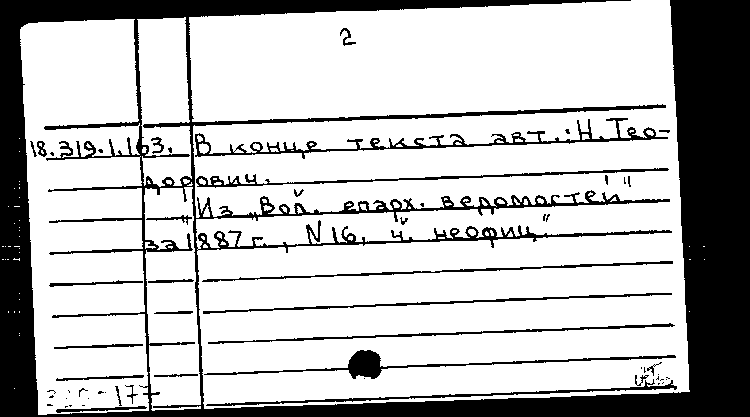 2
18.319.1.163. В конце текста авт.: Н. Тео-
дорович.
"Из "Вол. епарх. ведомостей"
за 1887 г., N 16, ч. неофиц."
-177